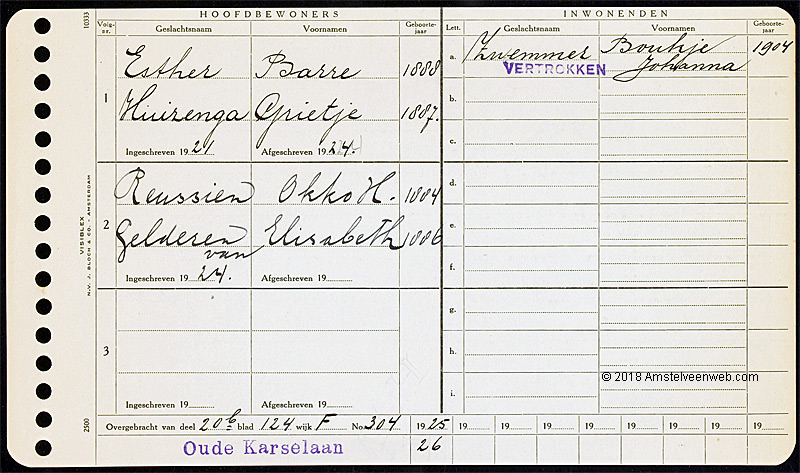 HOOFDBEWONERS
Volg-nr. Geslachtsnaam Voornamen Geboorte-jaar
1
Esther Barre 1888
Huizenga Grietje 1887.
Ingeschreven 1921 Afgeschreven 1924.
2
Reussien Okko H. 1884
Gelderen van Elisabeth 1886
Ingeschreven 1924. Afgeschreven 19
3
Ingeschreven 19 Afgeschreven 19
INWONENDEN
Lett. Geslachtsnaam Voornamen Geboorte-jaar
a. Zwemmer Boukje 1904
VERTROKKEN Johanna
b.
c.
d.
e.
f.
g.
h.
i.
© 2018 Amstelveenweb.com
Overgebracht van deel 20b blad 124 wijk F No. 304 1925 19 19 19 19 19 19 19 19
Oude Karselaan 26
10333
VISIBLEX
N.V. J. BLOCH & CO. - AMSTERDAM
2500